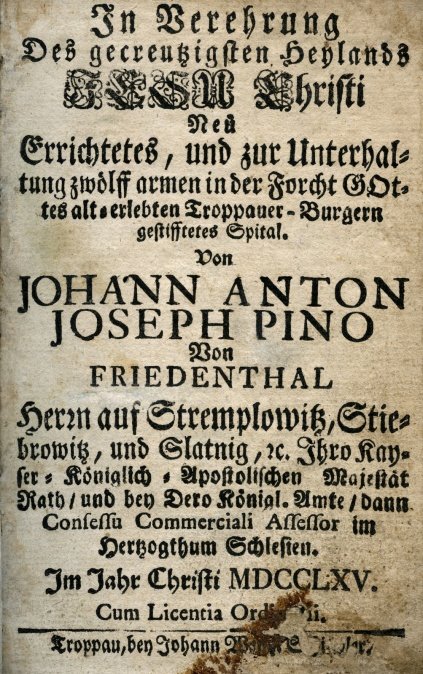 In Verehrung
Des gecreutzigsten Heylands
JESU Christi
Neu
Errichtetes, und zur Unterhal-
tung zwölff armen in der Forcht GOt-
tes alt-erlebten Troppauer-Burgern
gestifftetes Spital.
Von
JOHANN ANTON
JOSEPH PINO
Von
FRIEDENTHAL
Herrn auf Stremplowitz, Stie-
browitz, und Slatnig, ꝛc. Ihro Kay-
ser-Königlich-Apostolischen Majestät
Rath/und bey Dero Königl. Amte/dann
Consessu Commerciali Assessor im
Hertzogthum Schlesien.
Im Jahr Christi MDCCLXV.
Cum Licentia
Troppau, bey Johann